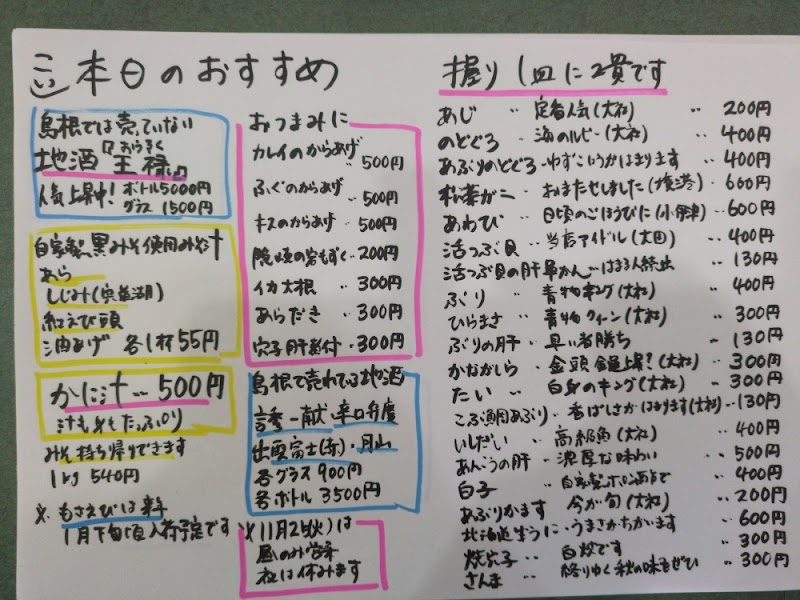 本日のおすすめ
島根では売っていない
おうろく
地酒『王禄』
人気上昇中! ボトル5000円
グラス 1500円
自家製黒みそ使用みそ汁
あら
しじみ(宍道湖)
紅えび頭
油あげ 各1杯55円
かに汁 … 500円
汁も身もたっぷり
みそ持ち帰りできます
1kg 540円
※ もさえびは来年
1月下旬頃入荷予定です
おつまみに
カレイのからあげ 500円
ふぐのからあげ 500円
キスのからあげ 500円
隠岐の岩もずく ‥ 200円
イカ大根 ‥ 300円
あらだき ‥ 300円
穴子肝煮付 ‥ 300円
島根で売れている地酒
誉 一献 辛口弁慶
出雲富士(赤)・月山
各グラス 900円
各ボトル 3500円
※11月25(火)は
昼のみ営業
夜は休みます
握り 1皿に2貫です
あじ ‥ 定番人気(大社) ‥ 200円
のどぐろ ‥ 海のルビー(大社) ‥ 400円
あぶりのどぐろ ‥ ゆずこしょうがはまります ‥ 400円
松葉ガニ ‥ おまたせしました(境港) ‥ 600円
あわび ‥ 日頃のごほうびに(小伊津) ‥ 600円
活つぶ貝 ‥ 当店アイドル(大田) ‥ 400円
活つぶ貝の肝軍かん ‥ はまる人続出 ‥ 130円
ぶり ‥ 青物キング(大社) ‥ 400円
ひらまさ ‥ 青物クィーン(大社) ‥ 300円
ぶりの肝 ‥ 早い者勝ち ‥ 130円
かながしら ‥ 金頭 急上昇?(大社) ‥ 300円
たい ‥ 白身のキング(大社) ‥ 300円
こぶ鯛あぶり ‥ 香ばしさがはまります(大社) ‥ 130円
いしだい ‥ 高級魚(大社) ‥ 400円
あんこうの肝 ‥ 濃厚な味わい ‥ 500円
白子 ‥ 自家製ポン酢で ‥ 400円
あぶりかます ‥ 今が旬(大社) ‥ 200円
北海道生うに ‥ うまさがちがいます ‥ 600円
焼穴子 ‥ 自炊です ‥ 300円
さんま ‥ 終りゆく秋の味をぜひ ‥ 300円